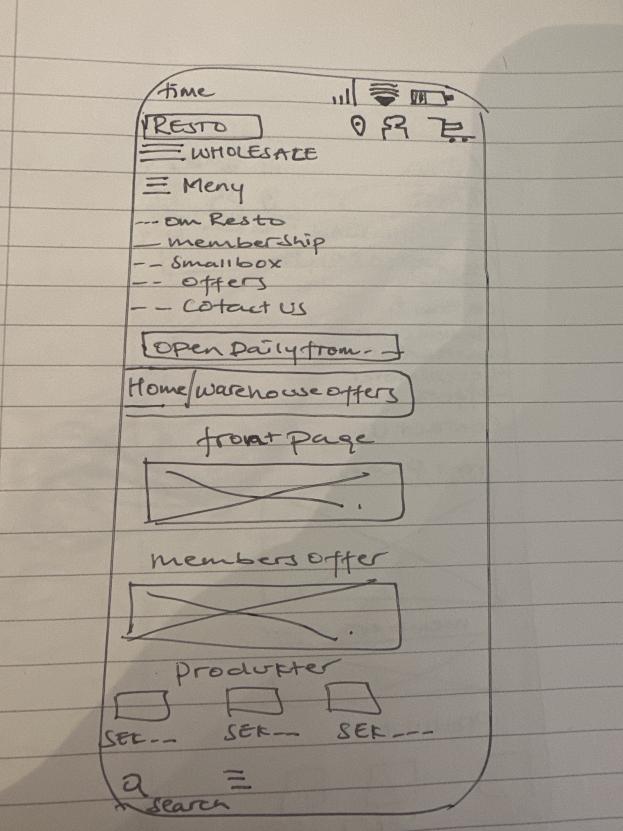 time
RESTO
WHOLESALE
Meny
-- om Resto
- membership
-- Smallbox
-- offers
-- Cotact us
Open Daily from--
Home/warehouse offers
front page
members offer
Produkter
SEK-- SEK-- SEK---
search